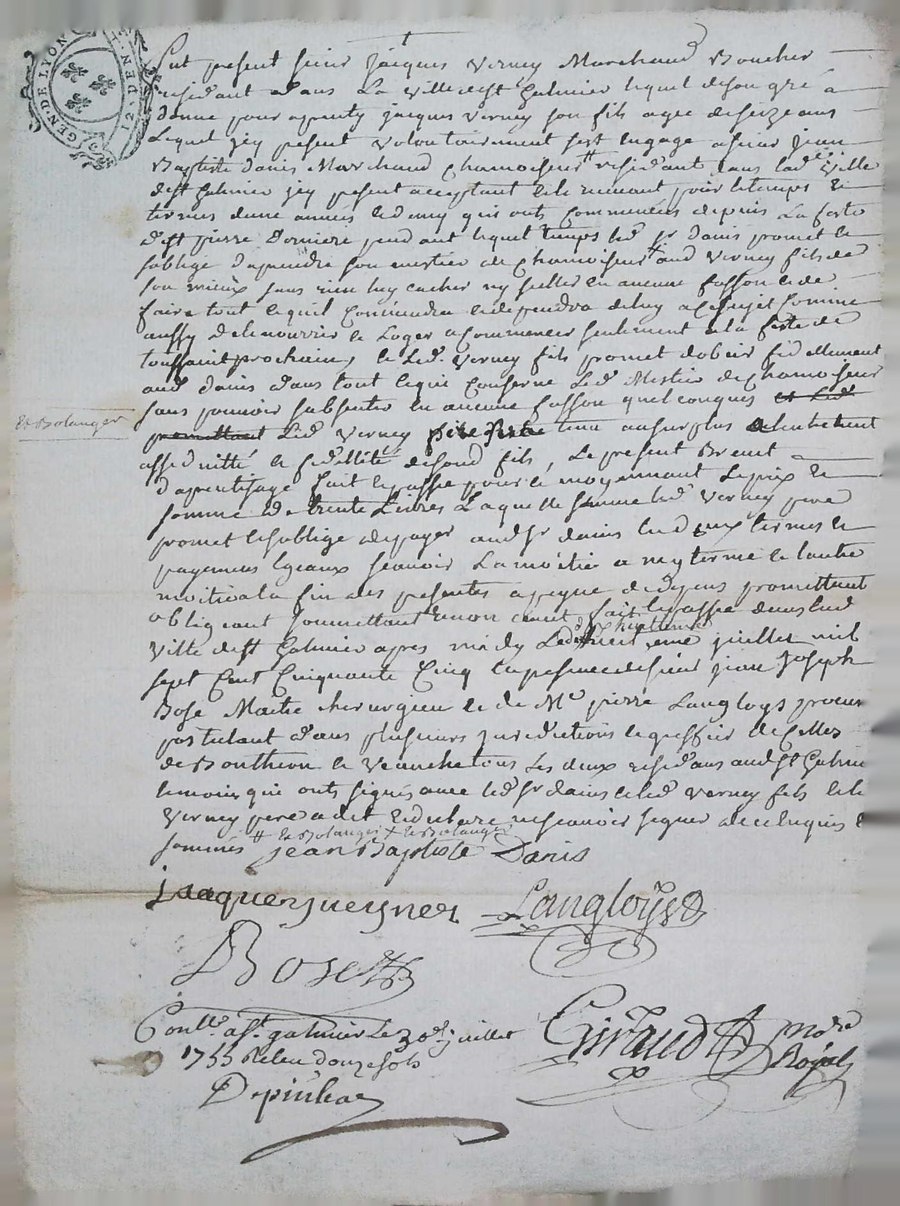 GEN. DE LYON
12. DEN. I.
fut présent sieur jacques verney Marchand Boucher
residant dans La ville de st Galmier lequel de son gré a
donne pour aprenty jacques verney son fils agee de seize ans
Lequel icy present volontairement sest engage a sieur jean
Baptiste danis Marchand chamoiseur # residant dans lad. ville
de st Galmier icy present acceptant et le retenant pour le temps et
termes dune annee et demy qui onts commencés depuis La feste
de st pierre derniere pendant lequel temps led. sr danis promet et
soblige daprendre son mestier de chamoiseur # aud verney fils de
son mieux sans rien luy cacher ny seller en aucune fasson et de
faire tout ce quil conviendra et dependra de luy a ce sujet comme
aussy de le nourrir et Loger a commencer seulement a la feste de
toussaint prochain, et Led. verney fils promet dobeir fidellement
aud danis dans tout ce qui conserne Led Mestier de chamoiseur
Et Bolanger
sans pouvoir sabsenter en aucune fasson quelconques et Led
promettant Led verney père tenu au surplus
assiduitté et fidellité de sond fils, Le present Brevet
daprentisage fait et passe pour et moyennant Le prix et
somme de trente Livres Laquelle somme led verney pere
promet et soblige de payer aud sr danis en deux termes et
payemens egeaux scavoir La moitié a my terme et lautre
moitié a la fin des presentes a peyne de depens promettant
obligeant soumettant renoncant fait et passe dans lad
ville de st Galmier apres midy Le dix huitieme juillet mil
sept Cent Cinquante Cinq en presence de sieur jean joseph
Bose Maitre chirurgien et de Me pierre Langloys procur
postulant dans plusieurs jurisdictions et greffier de celles
de Bontheon et Veauche tous Les deux residans aud st Galmie
temoins qui onts signés avec led sr danis et led verney fils et le
verney pere a dit et declare ne scavoir signer de ce enquis et
sommés # et Bolanger + et Bolanger
jean Baptiste Danis
Langloys
Bose
Conllé a st galmier Le 30e juillet
1755 Receu douze sols
Giraud nore
Royal